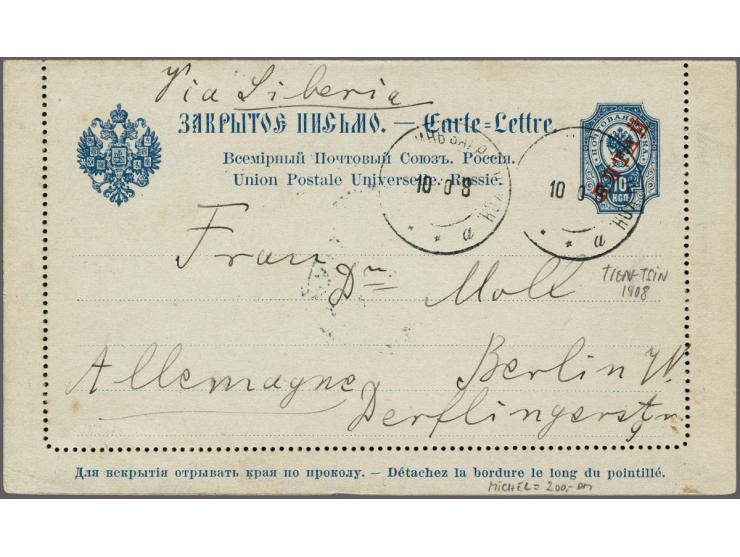 Via Siberia
ЗАКРЫТОЕ ПИСЬМО. — Carte-Lettre.
Всемірный Почтовый Союзъ. Россія.
Union Postale Universelle. Russie.
ПОЧТОВАЯ МАРКА
КИТАЙ
10
КОП
10 0 8
* * а
10 0 8
* * а
Frau Dr Moll
TIENTSIN
1908
Allemagne, Berlin W.
Derflingerstr
9
Для вскрытія отрывать края по проколу. — Détachez la bordure le long du pointillé.
MICHEL = 200,- DM